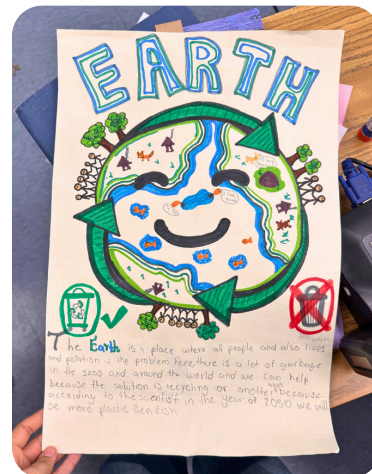 EARTH
The Earth is a place where all people and also lives
and polution is the problem here, there is a lot of garbage
in the seas and around the world and we can help
because the solution is recycling or another ways because
according to the scientist in the year of 2050 we will
se more plastic then fish